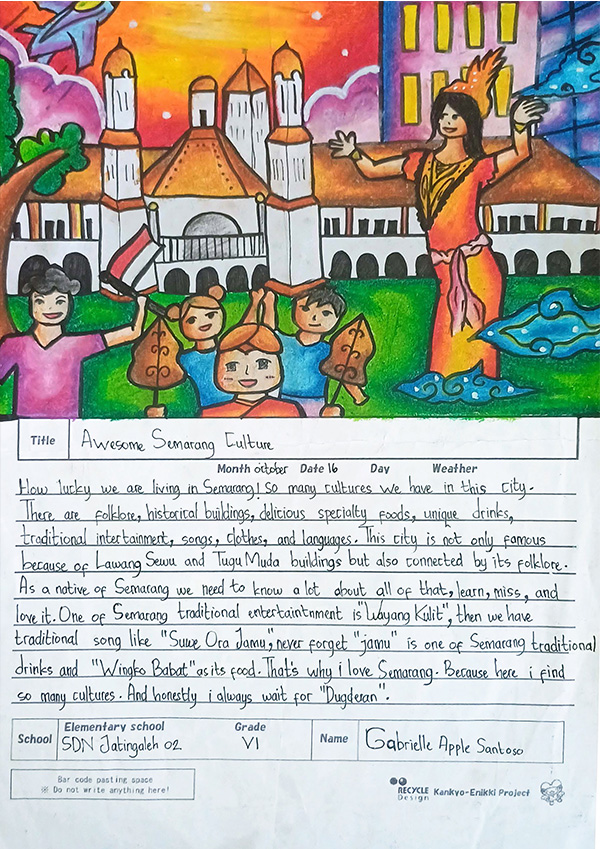 Title Awesome Semarang Culture
Month october Date 16 Day Weather
How lucky we are living in Semarang! So many cultures we have in this city.
There are folklore, historical buildings, delicious specialty foods, unique drinks,
traditional intertainment, songs, clothes, and languages. This city is not only famous
because of Lawang Sewu and Tugu Muda buildings but also connected by its folklore.
As a native of Semarang we need to know a lot about all of that, learn, miss, and
love it. One of Semarang traditional entertaintnment is "Wayang Kulit", then we have
traditional song like "Suwe Ora Jamu", never forget "jamu" is one of Semarang traditional
drinks and "Wingko Babat" as its food. That's why i love Semarang. Because here i find
so many cultures. And honestly i always wait for "Dugderan".
School Elementary school Grade Name
SDN Jatingaleh 02 VI Gabrielle Apple Santoso
Bar code pasting space
※ Do not write anything here!
RECYCLE Design Kankyo-Enikki Project